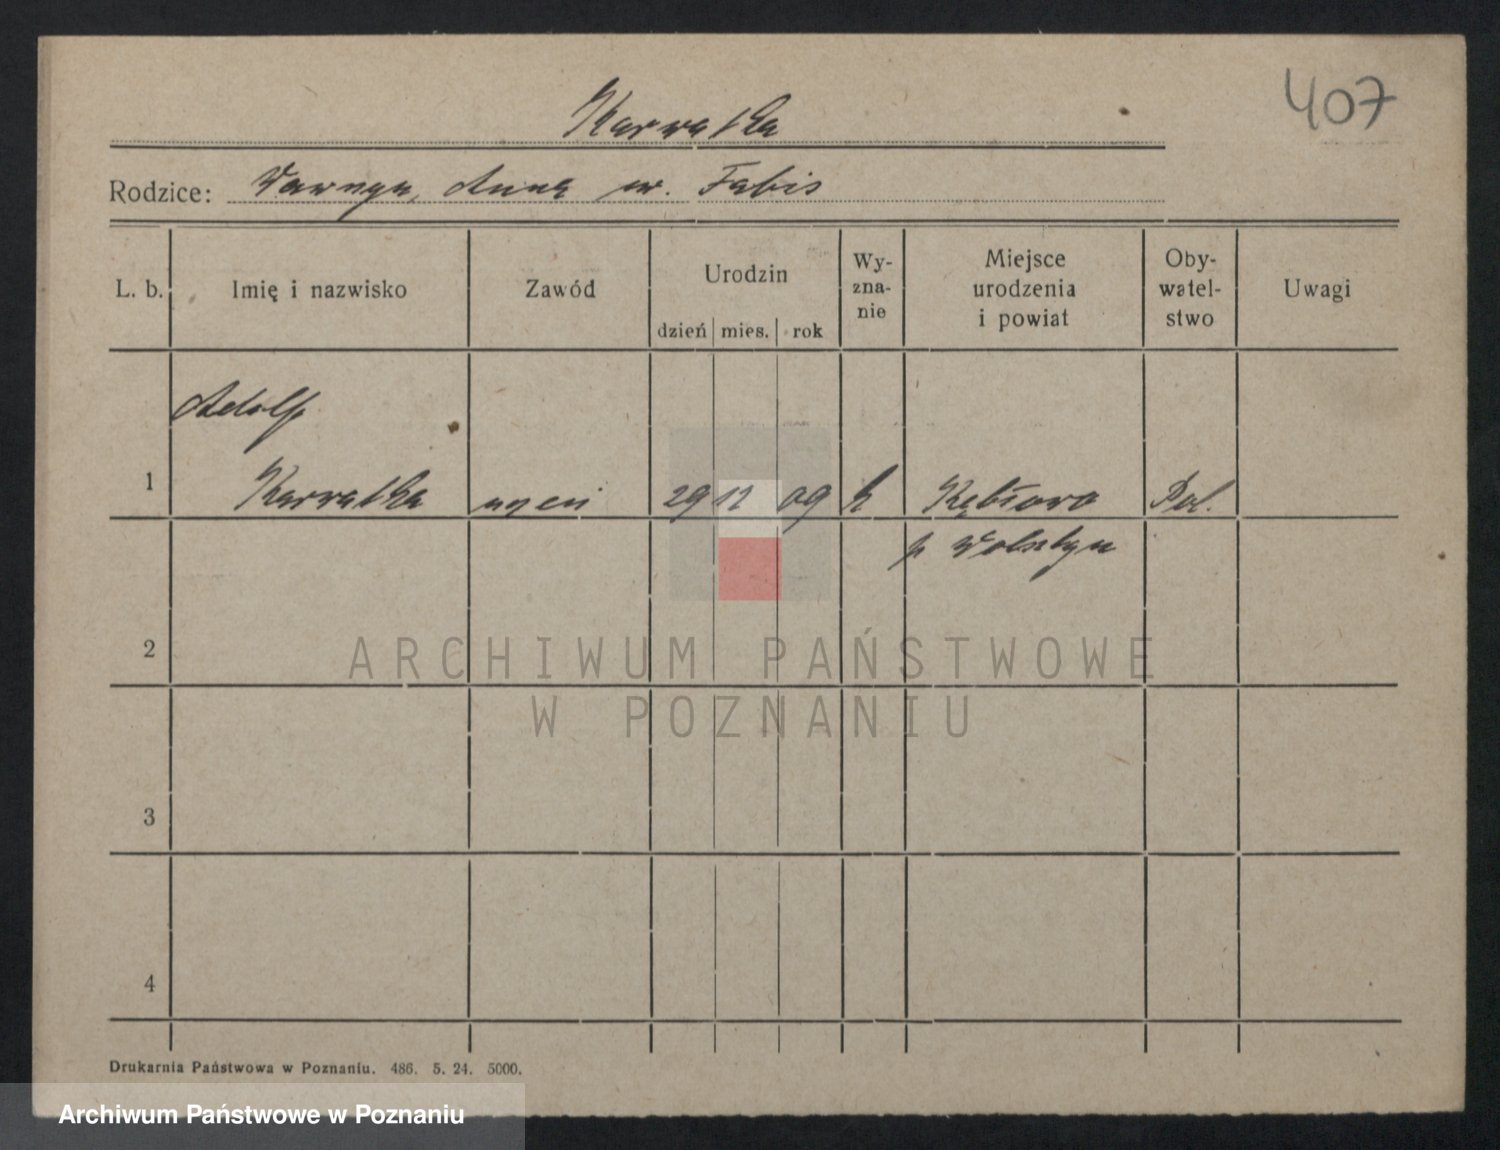 407
Karwatka
Rodzice: Wawrzyn, Anna ur. Fabis
L. b. Imię i nazwisko Zawód Urodzin dzień mies. rok Wy-zna-nie Miejsce urodzenia i powiat Oby-watel-stwo Uwagi
Adolf
1 Karwatka uczeń 29 12 09 k Kębłowo Pol.
p Wolsztyn
2
3
4
ARCHIWUM PAŃSTWOWE
W POZNANIU
Drukarnia Państwowa w Poznaniu. 486. 5. 24. 5000.
Archiwum Państwowe w Poznaniu